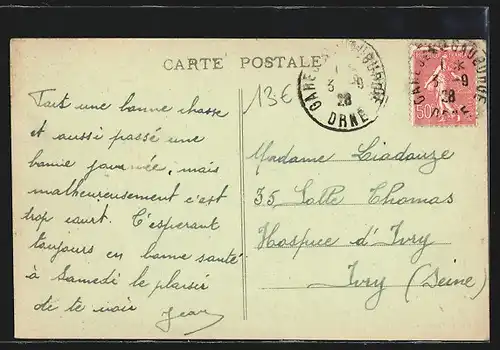 CARTE POSTALE
13€
Fait une bonne chasse
et aussi passé une
bonne journée, mais
malheureusement c'est
trop court. T'espérant
toujours en bonne santé
à Samedi le plaisir
de te voir
Jean
GARE DE
3 - 9
28
ORNE
GARE DE
3 9
28
50
Madame Liadouze
35 Salle Thomas
Hospice d'Ivry
Ivry (Seine)